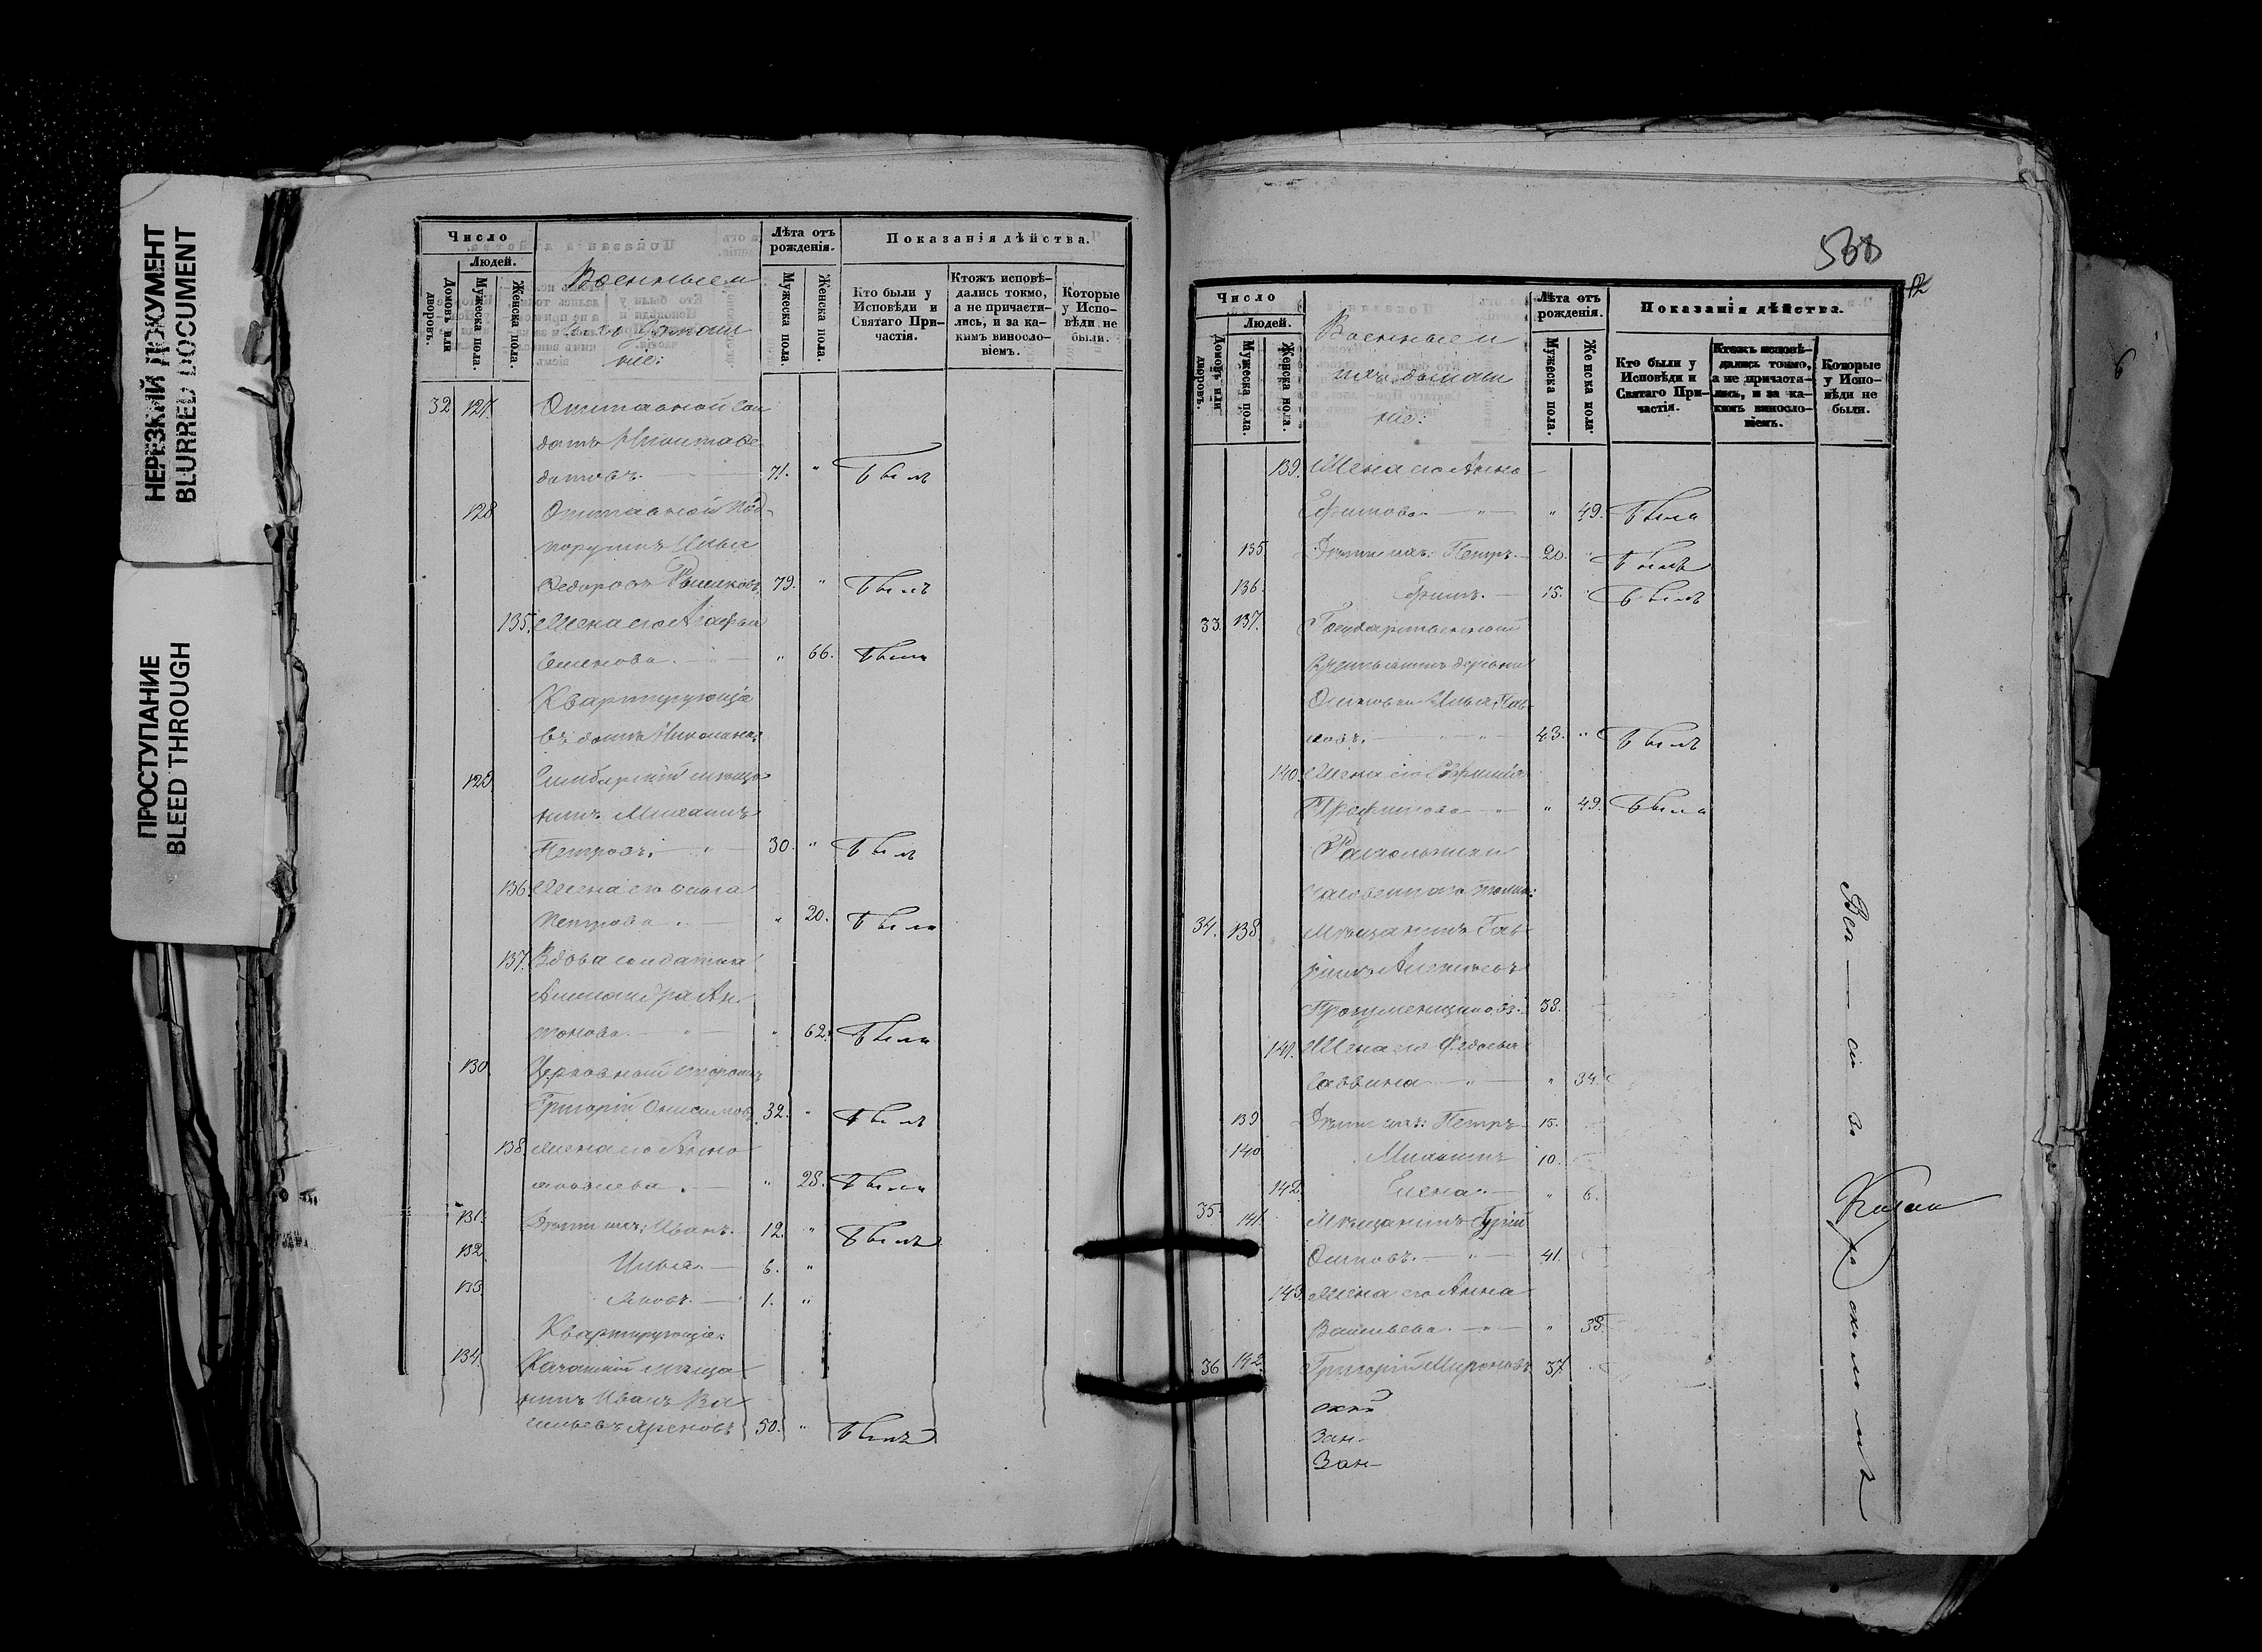 НЕРЕЗКИЙ ДОКУМЕНТ
BLURRED DOCUMENT
ПРОСТУПАНИЕ
BLEED THROUGH
Число
Людей.
Домовъ или дворовъ.
Мужеска пола.
Женска пола.
Военные и
домаш
ніе:
Лѣта отъ рожденія.
Мужеска пола.
Женска пола.
Показанія дѣйства.
Кто были у Исповѣди и Святаго Причастія.
Ктожъ исповѣдались токмо, а не причастились, и за какимъ винословіемъ.
Которые у Исповѣди не были.
32 127. Отставной сол
датъ Никита Ѳе
дотовъ. 71. " Былъ
128 Отставной Под-
поручикъ Илья
Ѳедоровъ 79. " Былъ
135. Жена его Агафья
Семенова. " 66. Была
Квартирующіе
въ домѣ
129 Симбирскій мѣща
нинъ Михаилъ
Петровъ. 30. " Былъ
136. Жена его Ольга
Петрова. " 20. Была
137. Вдова солдатка
Александра Ан
тонова. " 62. Была
130 Церковный сторожъ
Григорій Онисимовъ 32. " Былъ
138 Жена его Анна
Яковлева. " 28. Была
131. Дѣти ихъ: Иванъ. 12. " Былъ
132 Илья. 6. "
133 Яковъ. 1. "
Квартирующіе:
134. мѣща
нинъ Иванъ Ва
сильевъ 50. " Былъ
568
12
Число
Людей.
Домовъ или дворовъ.
Мужеска пола.
Женска пола.
Военные и
ихъ домаш
ніе:
Лѣта отъ рожденія.
Мужеска пола.
Женска пола.
Показанія дѣйства.
Кто были у Исповѣди и Святаго Причастія.
Ктожъ исповѣдались токмо, а не причастились, и за какимъ винословіемъ.
Которые у Исповѣди не были.
139. Жена его Анна
Ефимова " 49. Была
135 Дѣти ихъ: Петръ. 20. " Былъ
136. Ефимъ. 15. " Былъ
33. 137. Государственный
крестьянинъ деревни
Осиновки Илья Пав
ловъ. 43. " Былъ
140. Жена его
Трофимова " 49. Была
Раскольники
толка:
34. 138. Мѣщанинъ Гав
ріилъ Алексѣевъ
38.
141. Жена его Ѳедосья
Саввина " 34.
139 Дѣти ихъ: Петръ 15.
140 Михаилъ 10.
142. Елена " 6.
35. 141. Мѣщанинъ Гурій
Осиповъ. 41.
143. Жена его Анна
Васильева. " 38.
36 142. Григорій Мироновъ 37.
Зан-
Зан-
6